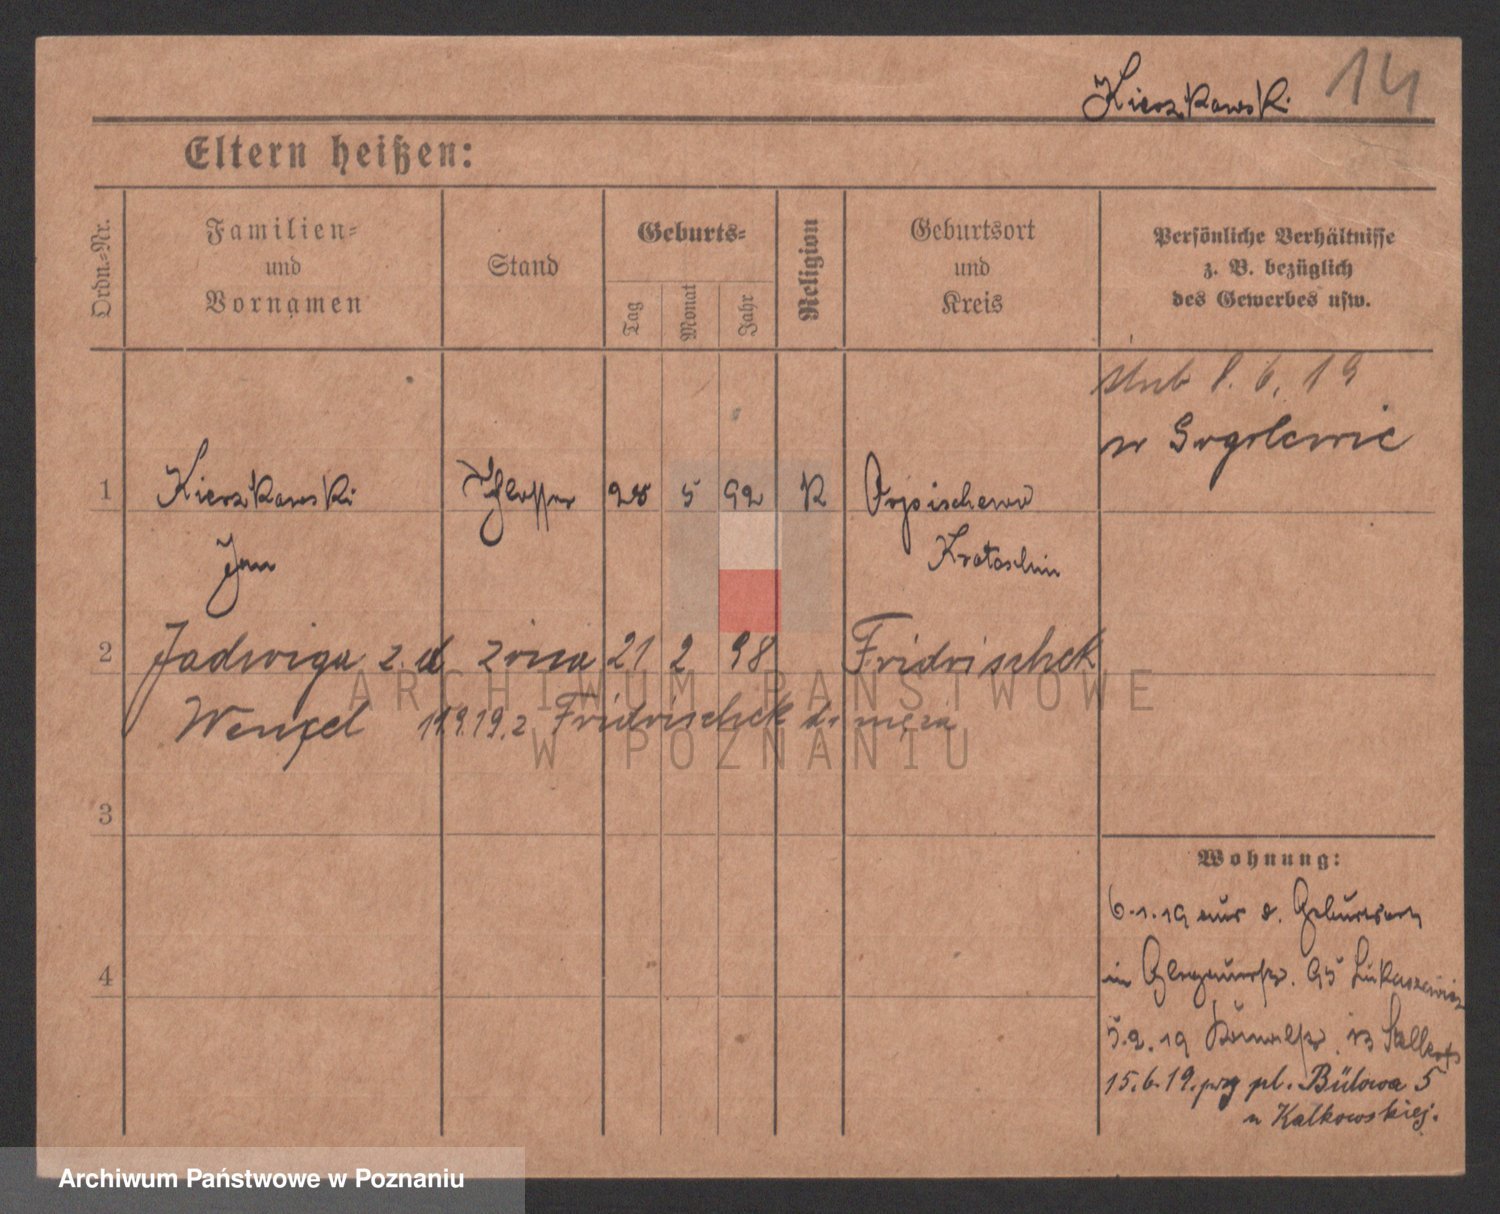 Kierzkowski 14
Eltern heißen:
Ordn.-Nr.
Familien-
und
Vornamen
Stand
Geburts-
Tag
Monat
Jahr
Religion
Geburtsort
und
Kreis
Persönliche Verhältnisse
z. B. bezüglich
des Gewerbes usw.
ślub 8. 6. 19
w
1 Kierzkowski Schlosser 28 5 92 K
Jan Krotoschin
2 Jadwiga z. d. żona 21 2 98 Fridrischek
Wenzel 19.9.19. z Fridrischek do męża
3
4
Wohnung:
6.1.19 aus d. Geburtsort
in 95 Lukaszewicz
5.2.19 13
15.6.19. prg pl. Bülowa 5
u Kalkowskiej.
ARCHIWUM PAŃSTWOWE
W POZNANIU
Archiwum Państwowe w Poznaniu